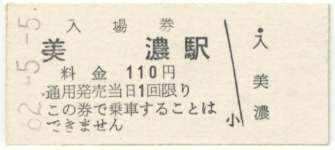 62.-5.-5.
入場券
美濃駅
料金 110円
通用発売当日1回限り
この券で乗車することは
できません
小
入
美
濃